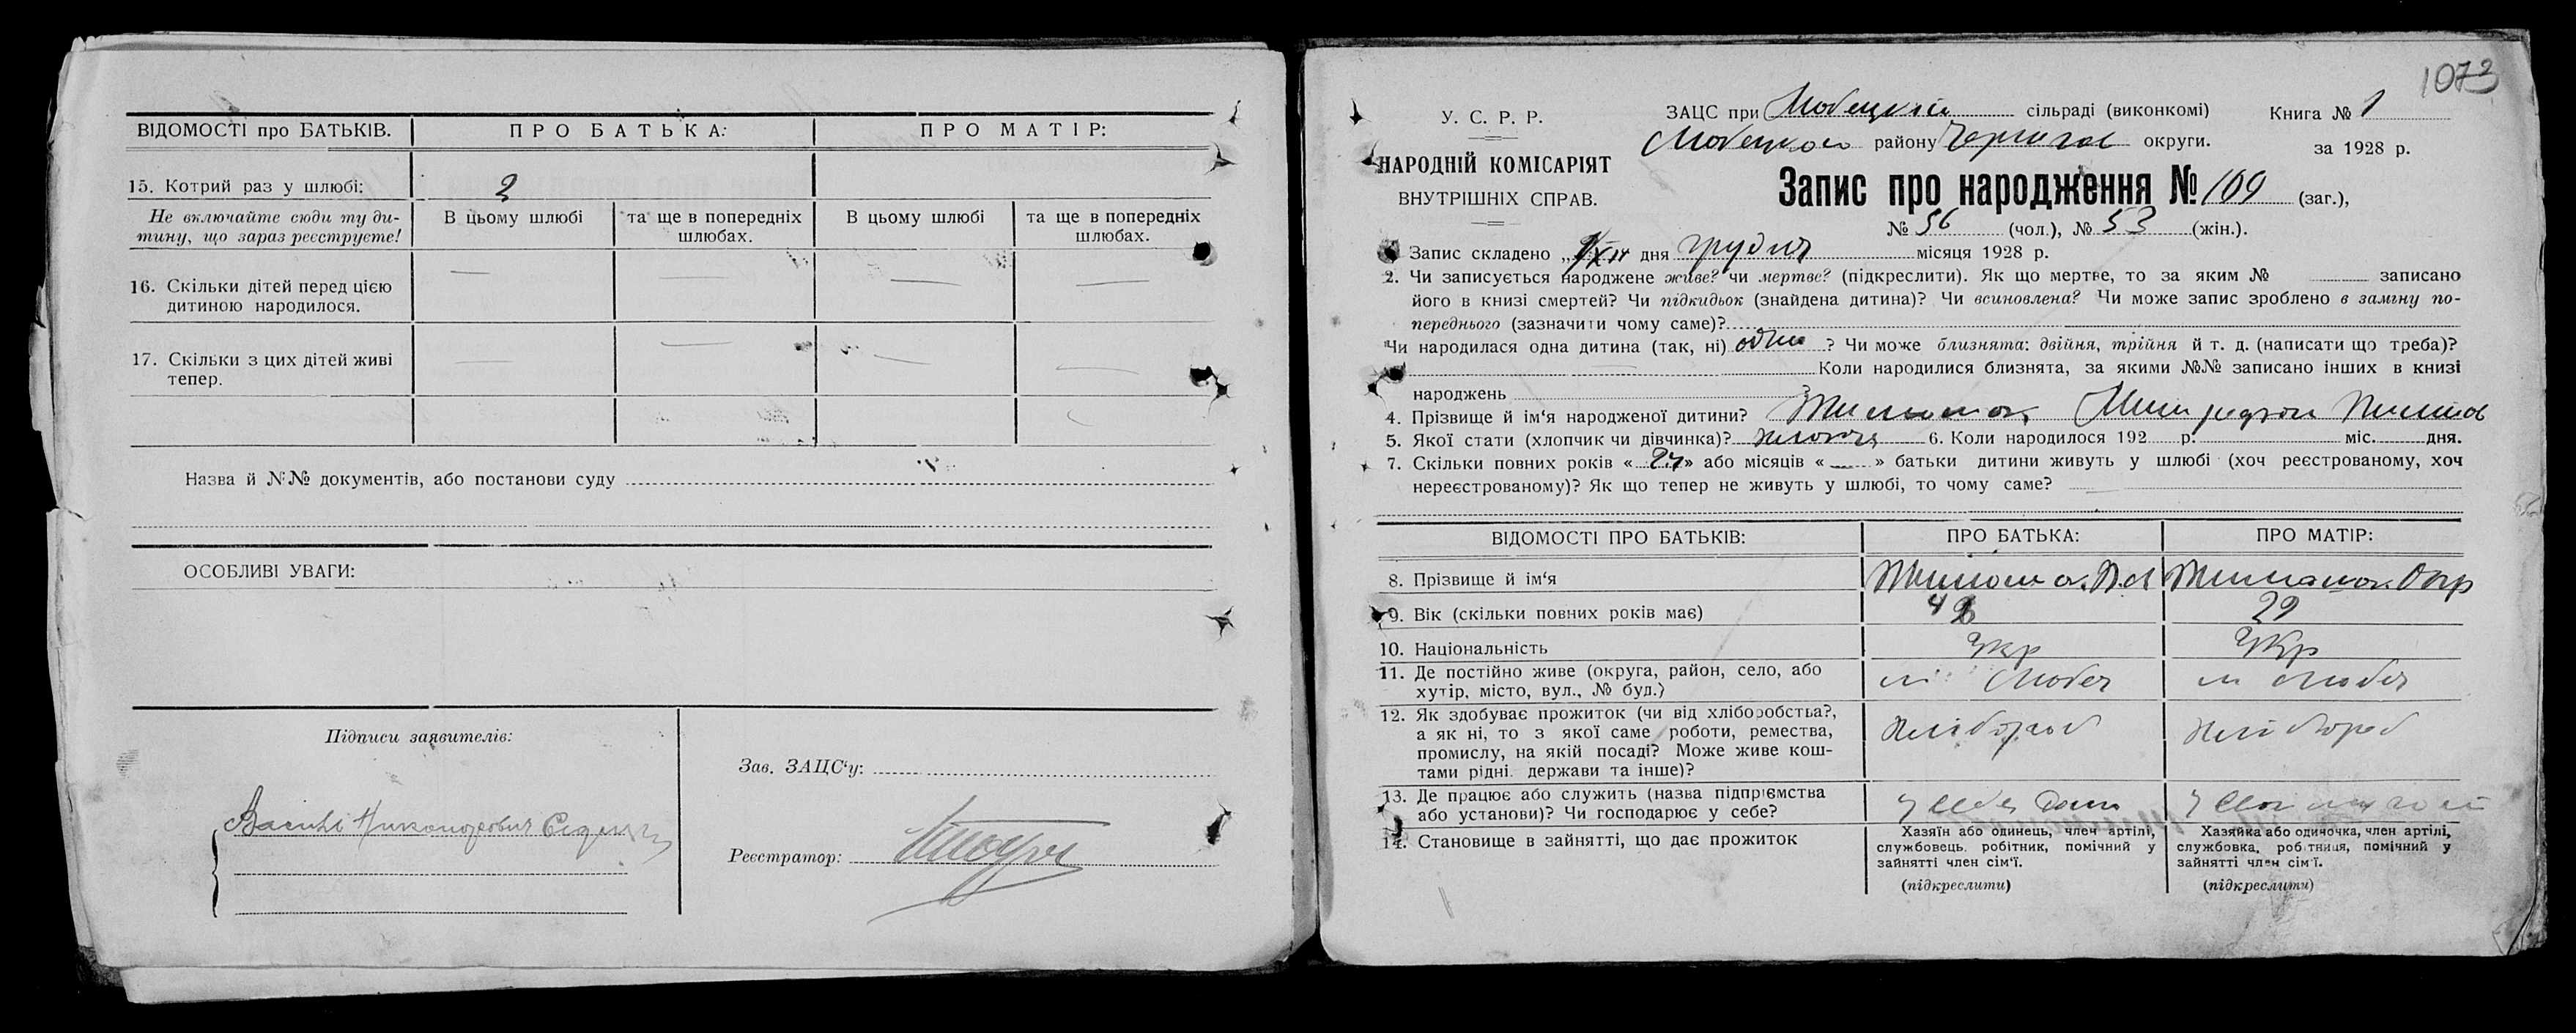 ВІДОМОСТІ про БАТЬКІВ. ПРО БАТЬКА: ПРО МАТІР:
15. Котрий раз у шлюбі: 2
Не включайте сюди ту ди- В цьому шлюбі та ще в попередніх В цьому шлюбі та ще в попередніх
тину, що зараз реєструєте! шлюбах. шлюбах.
16. Скільки дітей перед цією — — — —
дитиною народилося.
17. Скільки з цих дітей живі — — — —
тепер.
Назва й №№ документів, або постанови суду
ОСОБЛИВІ УВАГИ:
Підписи заявителів:
Зав. ЗАЦС‘у:
Реєстратор:
1073
У. С. Р. Р. ЗАЦС при Любецкій сільраді (виконкомі) Книга № 1
Любецкого району Чернигов округи. за 1928 р.
НАРОДНІЙ КОМІСАРІЯТ
ВНУТРІШНІХ СПРАВ.
Запис про народження № 109 (заг.),
№ 56 (чол.), № 53 (жін.).
Запис складено „ дня грудня місяця 1928 р.
2. Чи записується народжене живе? чи мертве? (підкреслити). Як що мертве, то за яким № записано
його в книзі смертей? Чи підкидьок (знайдена дитина)? Чи всиновлена? Чи може запис зроблено в заміну по-
переднього (зазначити чому саме)?
Чи народилася одна дитина (так, ні) одна ? Чи може близнята: двійня, трійня й т. д. (написати що треба)?
— Коли народилися близнята, за якими №№ записано інших в книзі
народжень ?
4. Прізвище й ім‘я народженої дитини?
5. Якої стати (хлопчик чи дівчинка)? 6. Коли народилося 192 р. міс. дня.
7. Скільки повних років « » або місяців « — » батьки дитини живуть у шлюбі (хоч реєстрованому, хоч
нереєстрованому)? Як що тепер не живуть у шлюбі, то чому саме? —
ВІДОМОСТІ ПРО БАТЬКІВ: ПРО БАТЬКА: ПРО МАТІР:
8. Прізвище й ім‘я
9. Вік (скільки повних років має) 29
10. Національність Укр Укр
11. Де постійно живе (округа, район, село, або м Любеч м Любеч
хутір, місто, вул., № буд.)
12. Як здобуває прожиток (чи від хліборобства?, Хлібороб Хлібороб
а як ні, то з якої саме роботи, ремества,
промислу, на якій посаді? Може живе кош-
тами рідні. держави та інше)?
13. Де працює або служить (назва підприємства
або установи)? Чи господарює у себе?
14. Становище в зайнятті, що дає прожиток
Хазяїн або одинець, член артілі,
службовець. робітник, помічний у
зайнятті член сім‘ї.
(підкреслити)
Хазяйка або одиночка, член артілі,
службовка, робітниця, помічний у
зайнятті член сім‘ї.
(підкреслити)